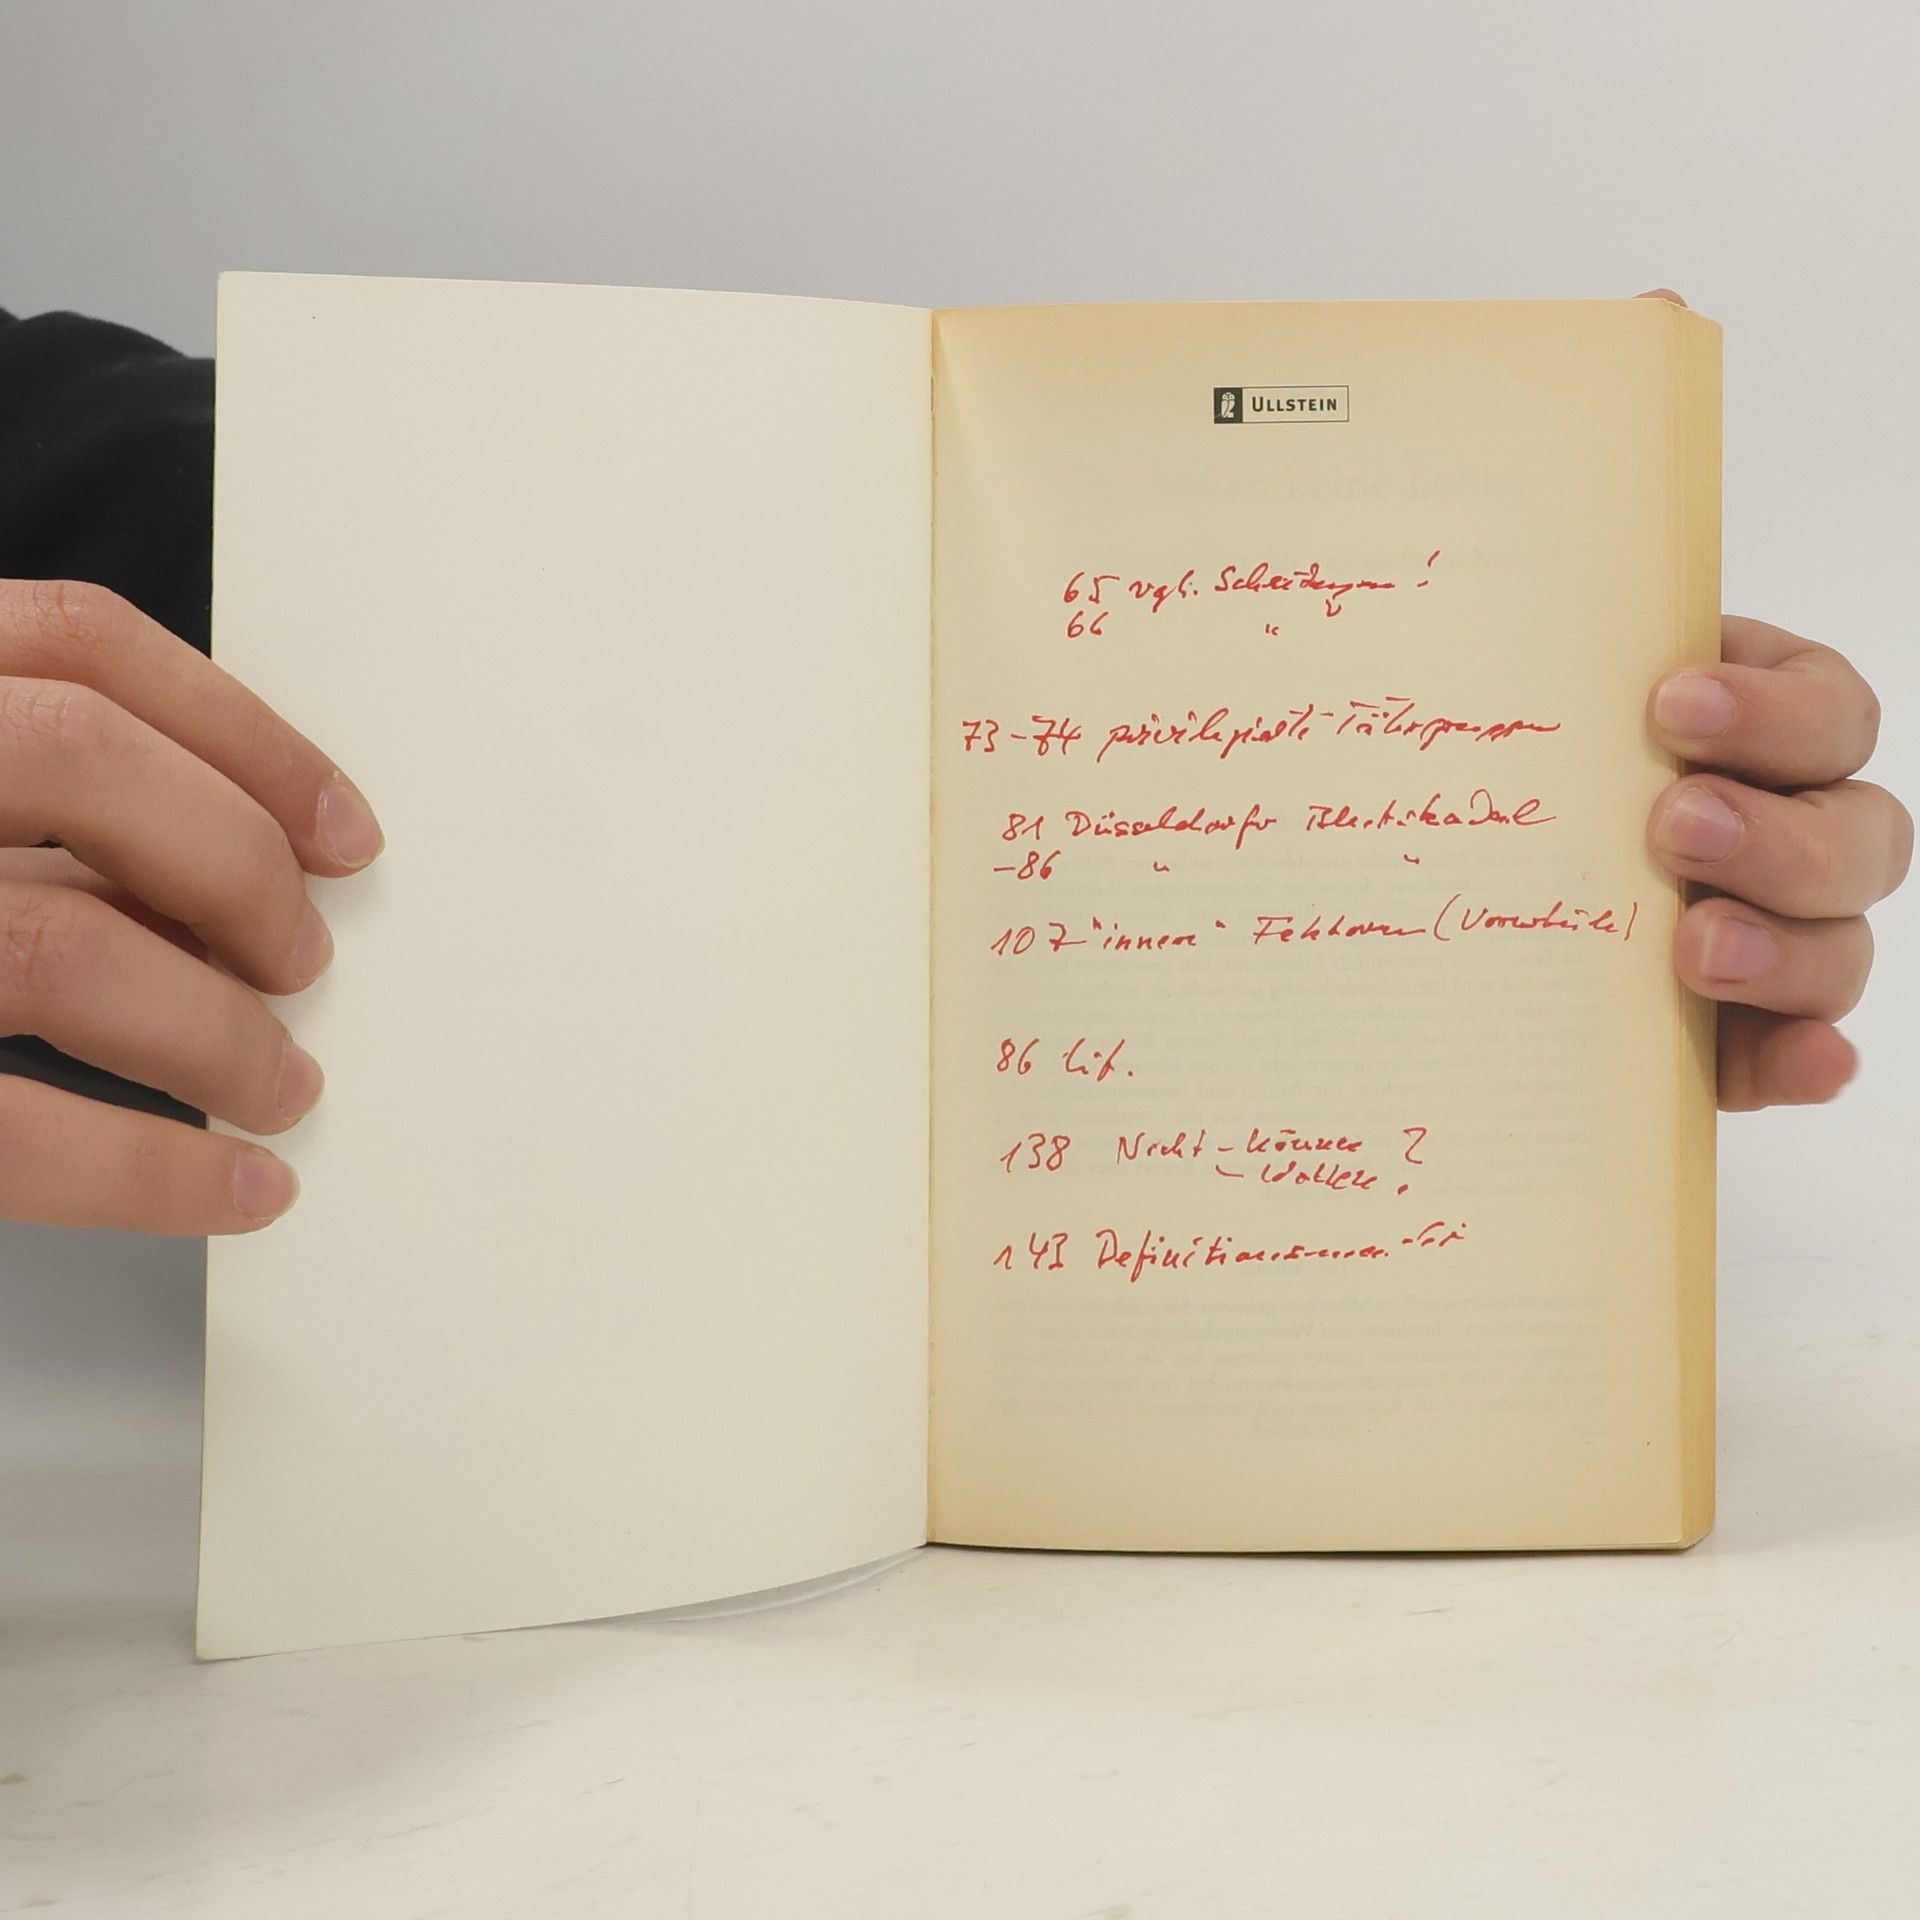 ULLSTEIN
65 vgl. Scheidungen!
66 "
73-74 privilegierte Tätergruppen
81 Düsseldorfer Blutskandal
-86 " "
107 "innere" Faktoren (Vorurteile)
86 Lit.
138 Nicht-können ?
- wollen
143